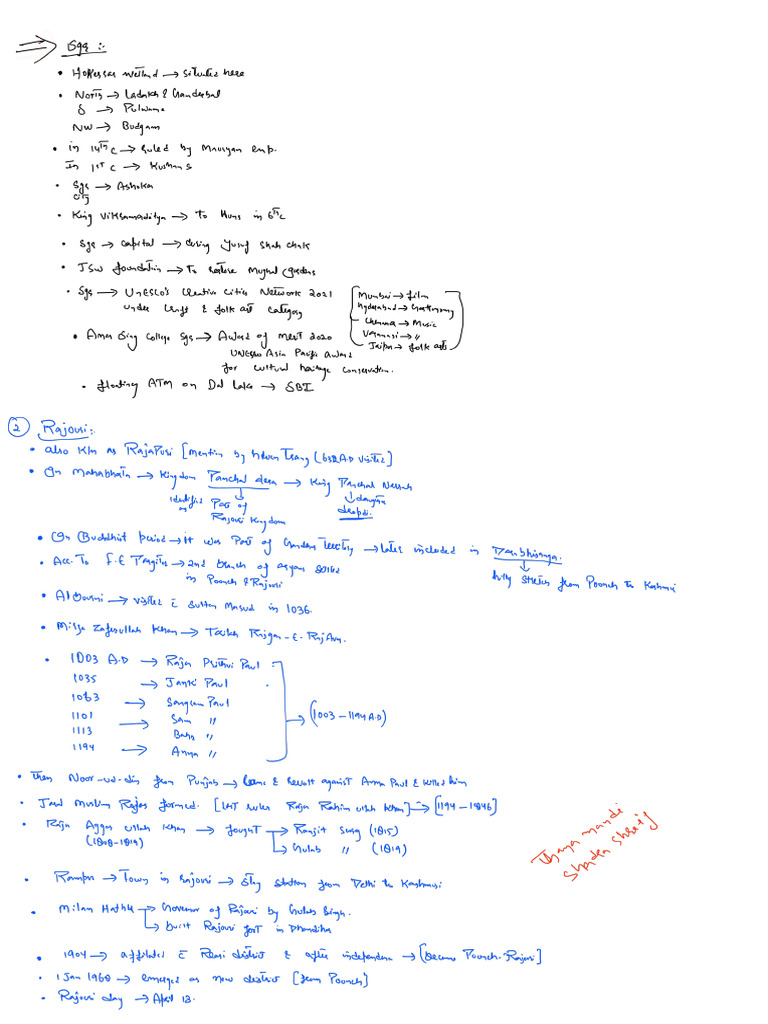 ⇒ Sgr :-
• Hokersar wetland → situated here
• North → Ladakh & Ganderbal
S → Pulwama
NW → Budgam
• in 14th C → ruled by Mauryan emp.
In 1st C → Kushans
• Sgr City → Ashoka
• King Vikramaditya → To Huns in 6th C
• Sgr → capital → during Yusuf Shah Chak
• JSW foundation → To restore Mughal gardens
• Sgr → UNESCO's Creative Cities Network 2021
under Craft & folk art category
[Mumbai → film
Hyderabad → Gastronomy
Chennai → Music
Varanasi → "
Jaipur → folk arts]
• Amar Sing College Sgr → Award of merit 2020
UNESCO Asia Pacific Award
for cultural heritage conservation.
• floating ATM on Dal Lake → SBI
② Rajouri :-
• also Kn as RajaPuri [mention by Hiuen Tsang (632 A.D visited]
• In Mahabhata → Kingdom Panchal desa → King Panchal Naresh
identified as Part of Rajouri Kingdom
↓ daughter dropdi.
• In Buddhist period → it was Part of Gandhara Territory → later included in Darabhisaga.
↓ hilly stretch from Poonch to Kashmir
• Acc. To F.E Pargiter → 2nd branch of aryan settled
in Poonch & Rajouri
• Al Baruni → visited c̄ Sultan Masud in 1036.
• Mirza Zafarullah Khan → Tarikh Rajgan-E-Rajaur.
• 1003 A.D → Raja Prithvi Paul
1035 → Janki Paul
1063 → Sangram Paul
1101 → Sam "
1113 → Bahu "
1194 → Amna "
→ (1003 – 1194 A.D)
• Then Noor-ud-din from Punjab → came & revolt against Amna Paul & killed him
• Jaral Muslim Rajas formed. [last ruler Raja Rahim ullah Khan] → [1194 – 1846]
• Raja Aggar ullah Khan → fought → Ranjit Surg (1815)
(1808-1819) → Gulab " (1819)
Thana mandi
Shadra Shreif
• Rampur → Town in rajouri → stay station from Delhi to Kashmir
• Milan Hathu → Governor of Rajouri by Gulab Singh.
→ built Rajouri fort in Dhanidhar
• 1904 → affiliated c̄ Reasi district & after independence → [became Poonch-Rajouri]
• 1 Jan 1968 → emerged as new district [from Poonch]
• Rajouri day → April 13.